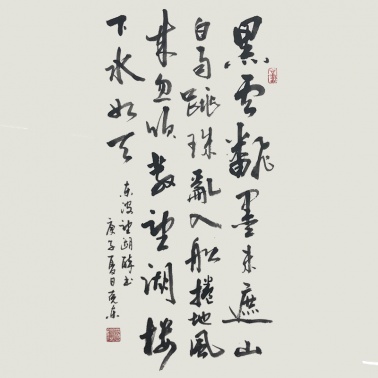 黑雲飜墨未遮山
白雨跳珠亂入船捲地風
来忽吹散望湖楼
下水如天
东坡望湖醉书
庚子夏日克东